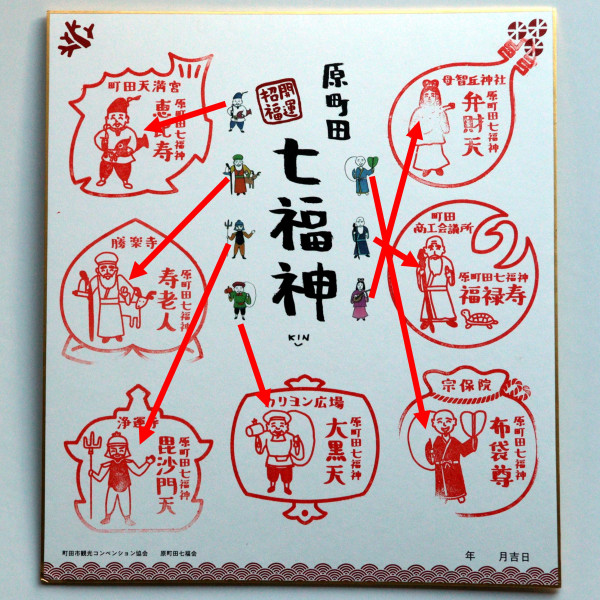 原町田
七福神
KIN
開運
招福
町田天満宮
原町田七福神
恵比寿
母智丘神社
原町田七福神
弁財天
勝楽寺
原町田七福神
寿老人
町田
商工会議所
原町田七福神
福禄寿
浄運寺
原町田七福神
毘沙門天
カリヨン広場
原町田七福神
大黒天
宗保院
原町田七福神
布袋尊
町田市観光コンベンション協会 原町田七福会
年 月吉日